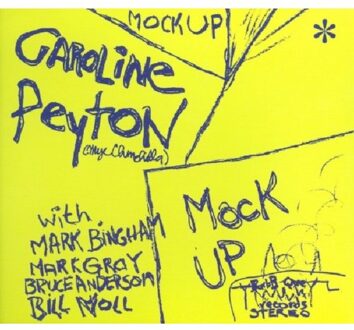 MOCKUP
CAROLINE
PEYTON
*
with.
MARK BINGHAM
MARK GRAY
BRUCE ANDERSON
BILL NOLL
MOCK
UP
records
STEREO